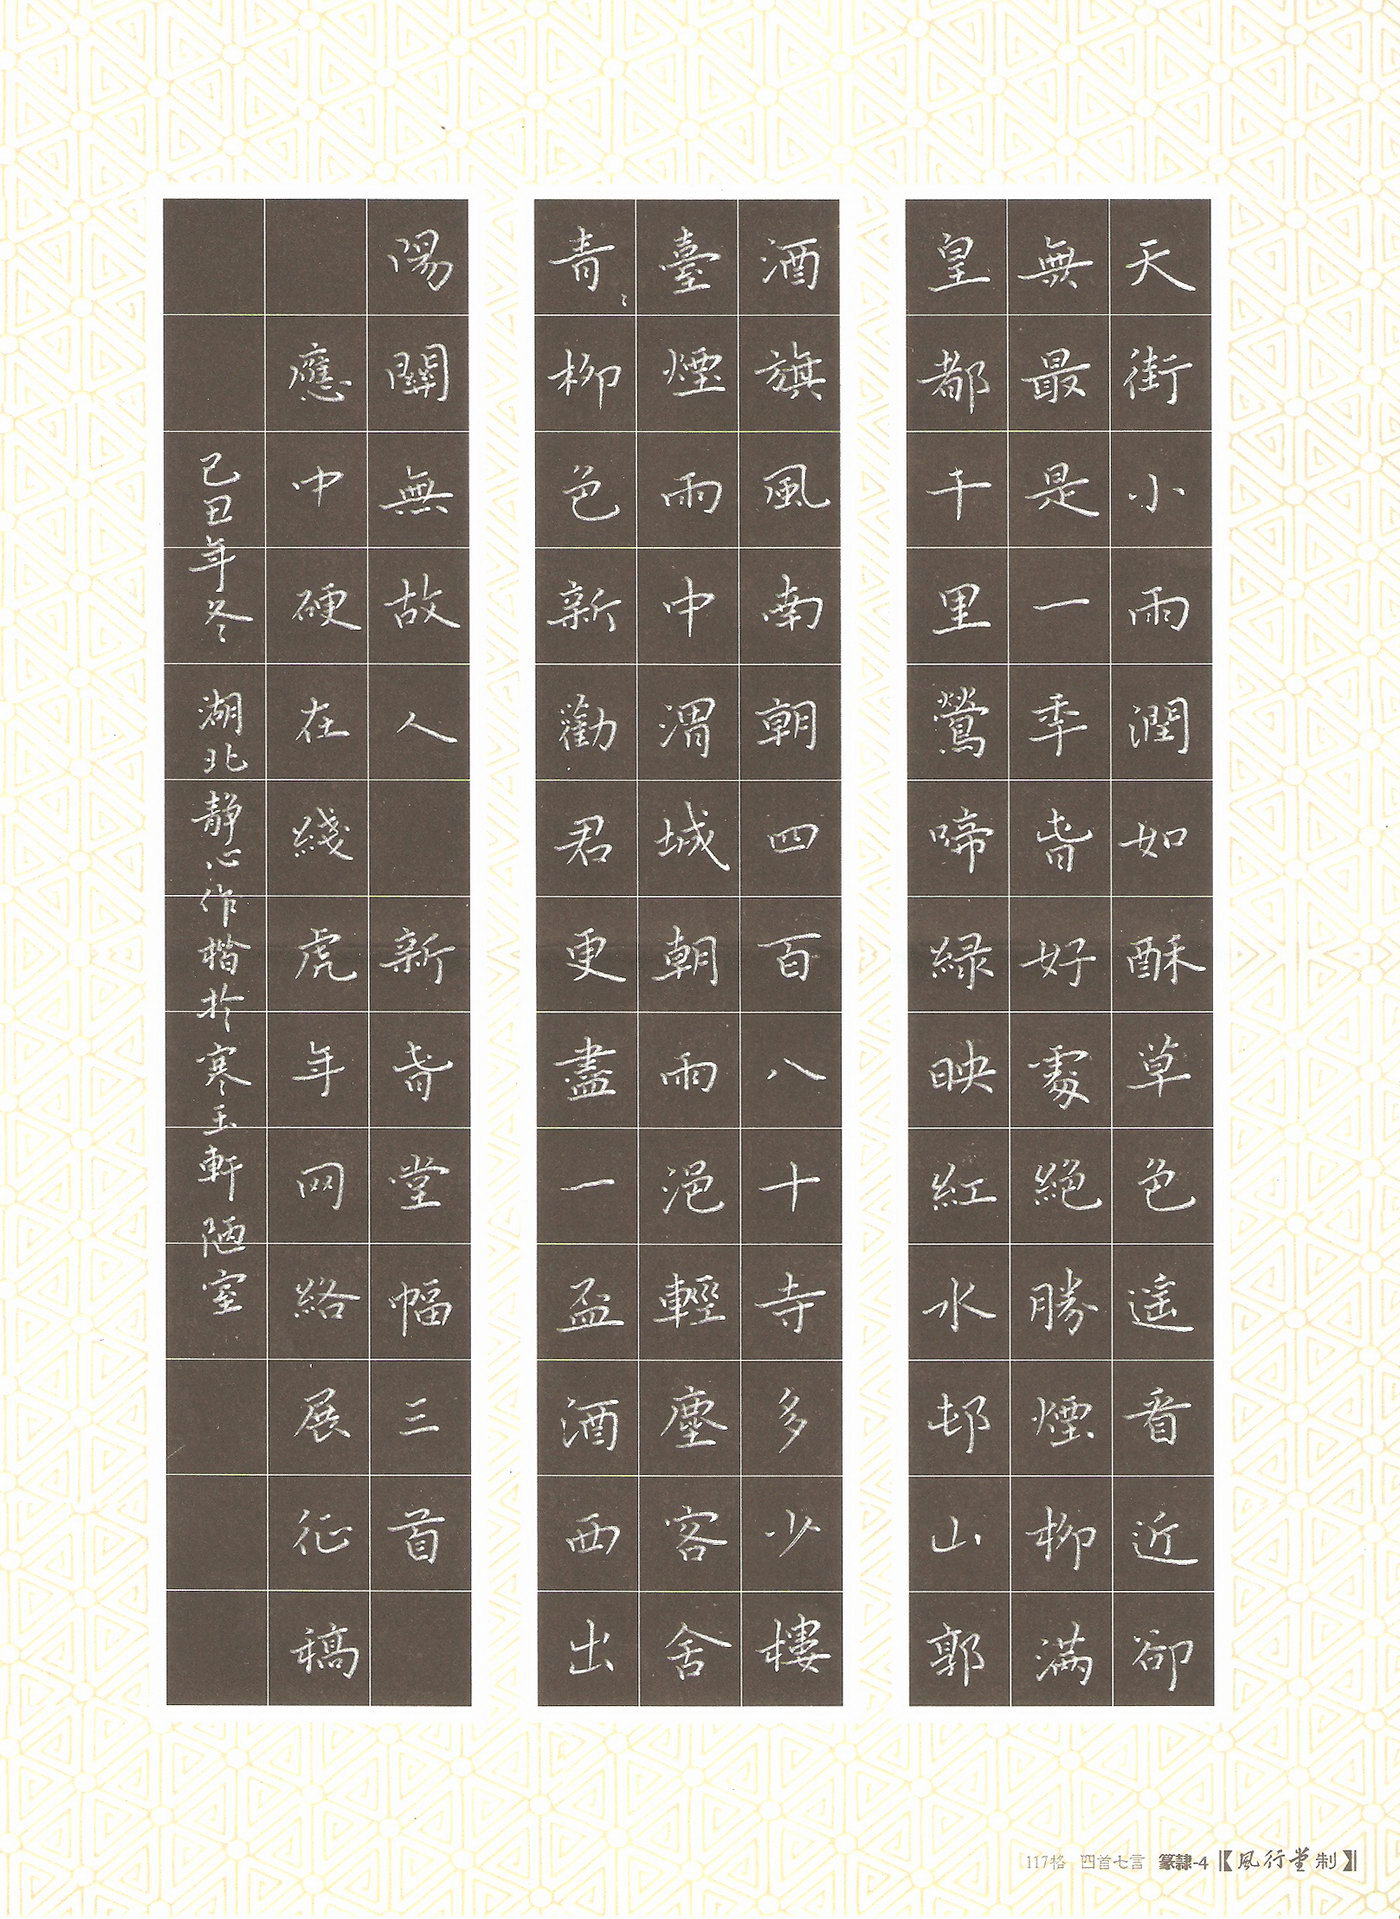 天街小雨潤如酥草色遥看近卻
無最是一年旹好處絕勝煙柳滿
皇都千里鶯啼緑映紅水邨山郭
酒旗風南朝四百八十寺多少樓
臺煙雨中渭城朝雨浥輕塵客舍
青〻柳色新勸君更盡一盃酒西出
陽關無故人 新旹堂幅三首
應中硬在綫虎年网絡展征稿
己丑年冬 湖北静心作楷於寒玉軒陋室
117格 四首七言 篆隸-4【風行堂制】